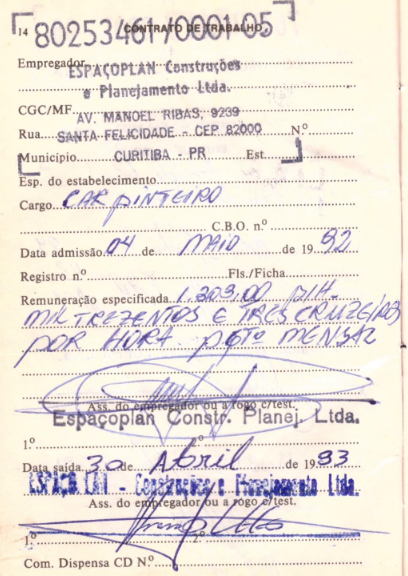 14 CONTRATO DE TRABALHO
80253461/0001-05
Empregador ESPAÇOPLAN Construções
e Planejamento Ltda.
CGC/MF AV. MANOEL RIBAS, 9239
Rua SANTA FELICIDADE - CEP 82000 N.º
Município CURITIBA - PR Est.
Esp. do estabelecimento
Cargo CARPINTEIRO
C.B.O. n.º
Data admissão 04 de MAIO de 1992
Registro n.º Fls./Ficha
Remuneração especificada 1.303,00 P/H.
MIL TREZENTOS E TRES CRUZEIROS
POR HORA PGTO MENSAL
Ass. do empregador ou a rogo c/test.
Espaçoplan Constr. Planej. Ltda.
1.º
Data saída 30 de Abril de 1993
ESPAÇOPLAN - Construções e Planejamento Ltda.
Ass. do empregador ou a rogo c/test.
1.º
Com. Dispensa CD N.º